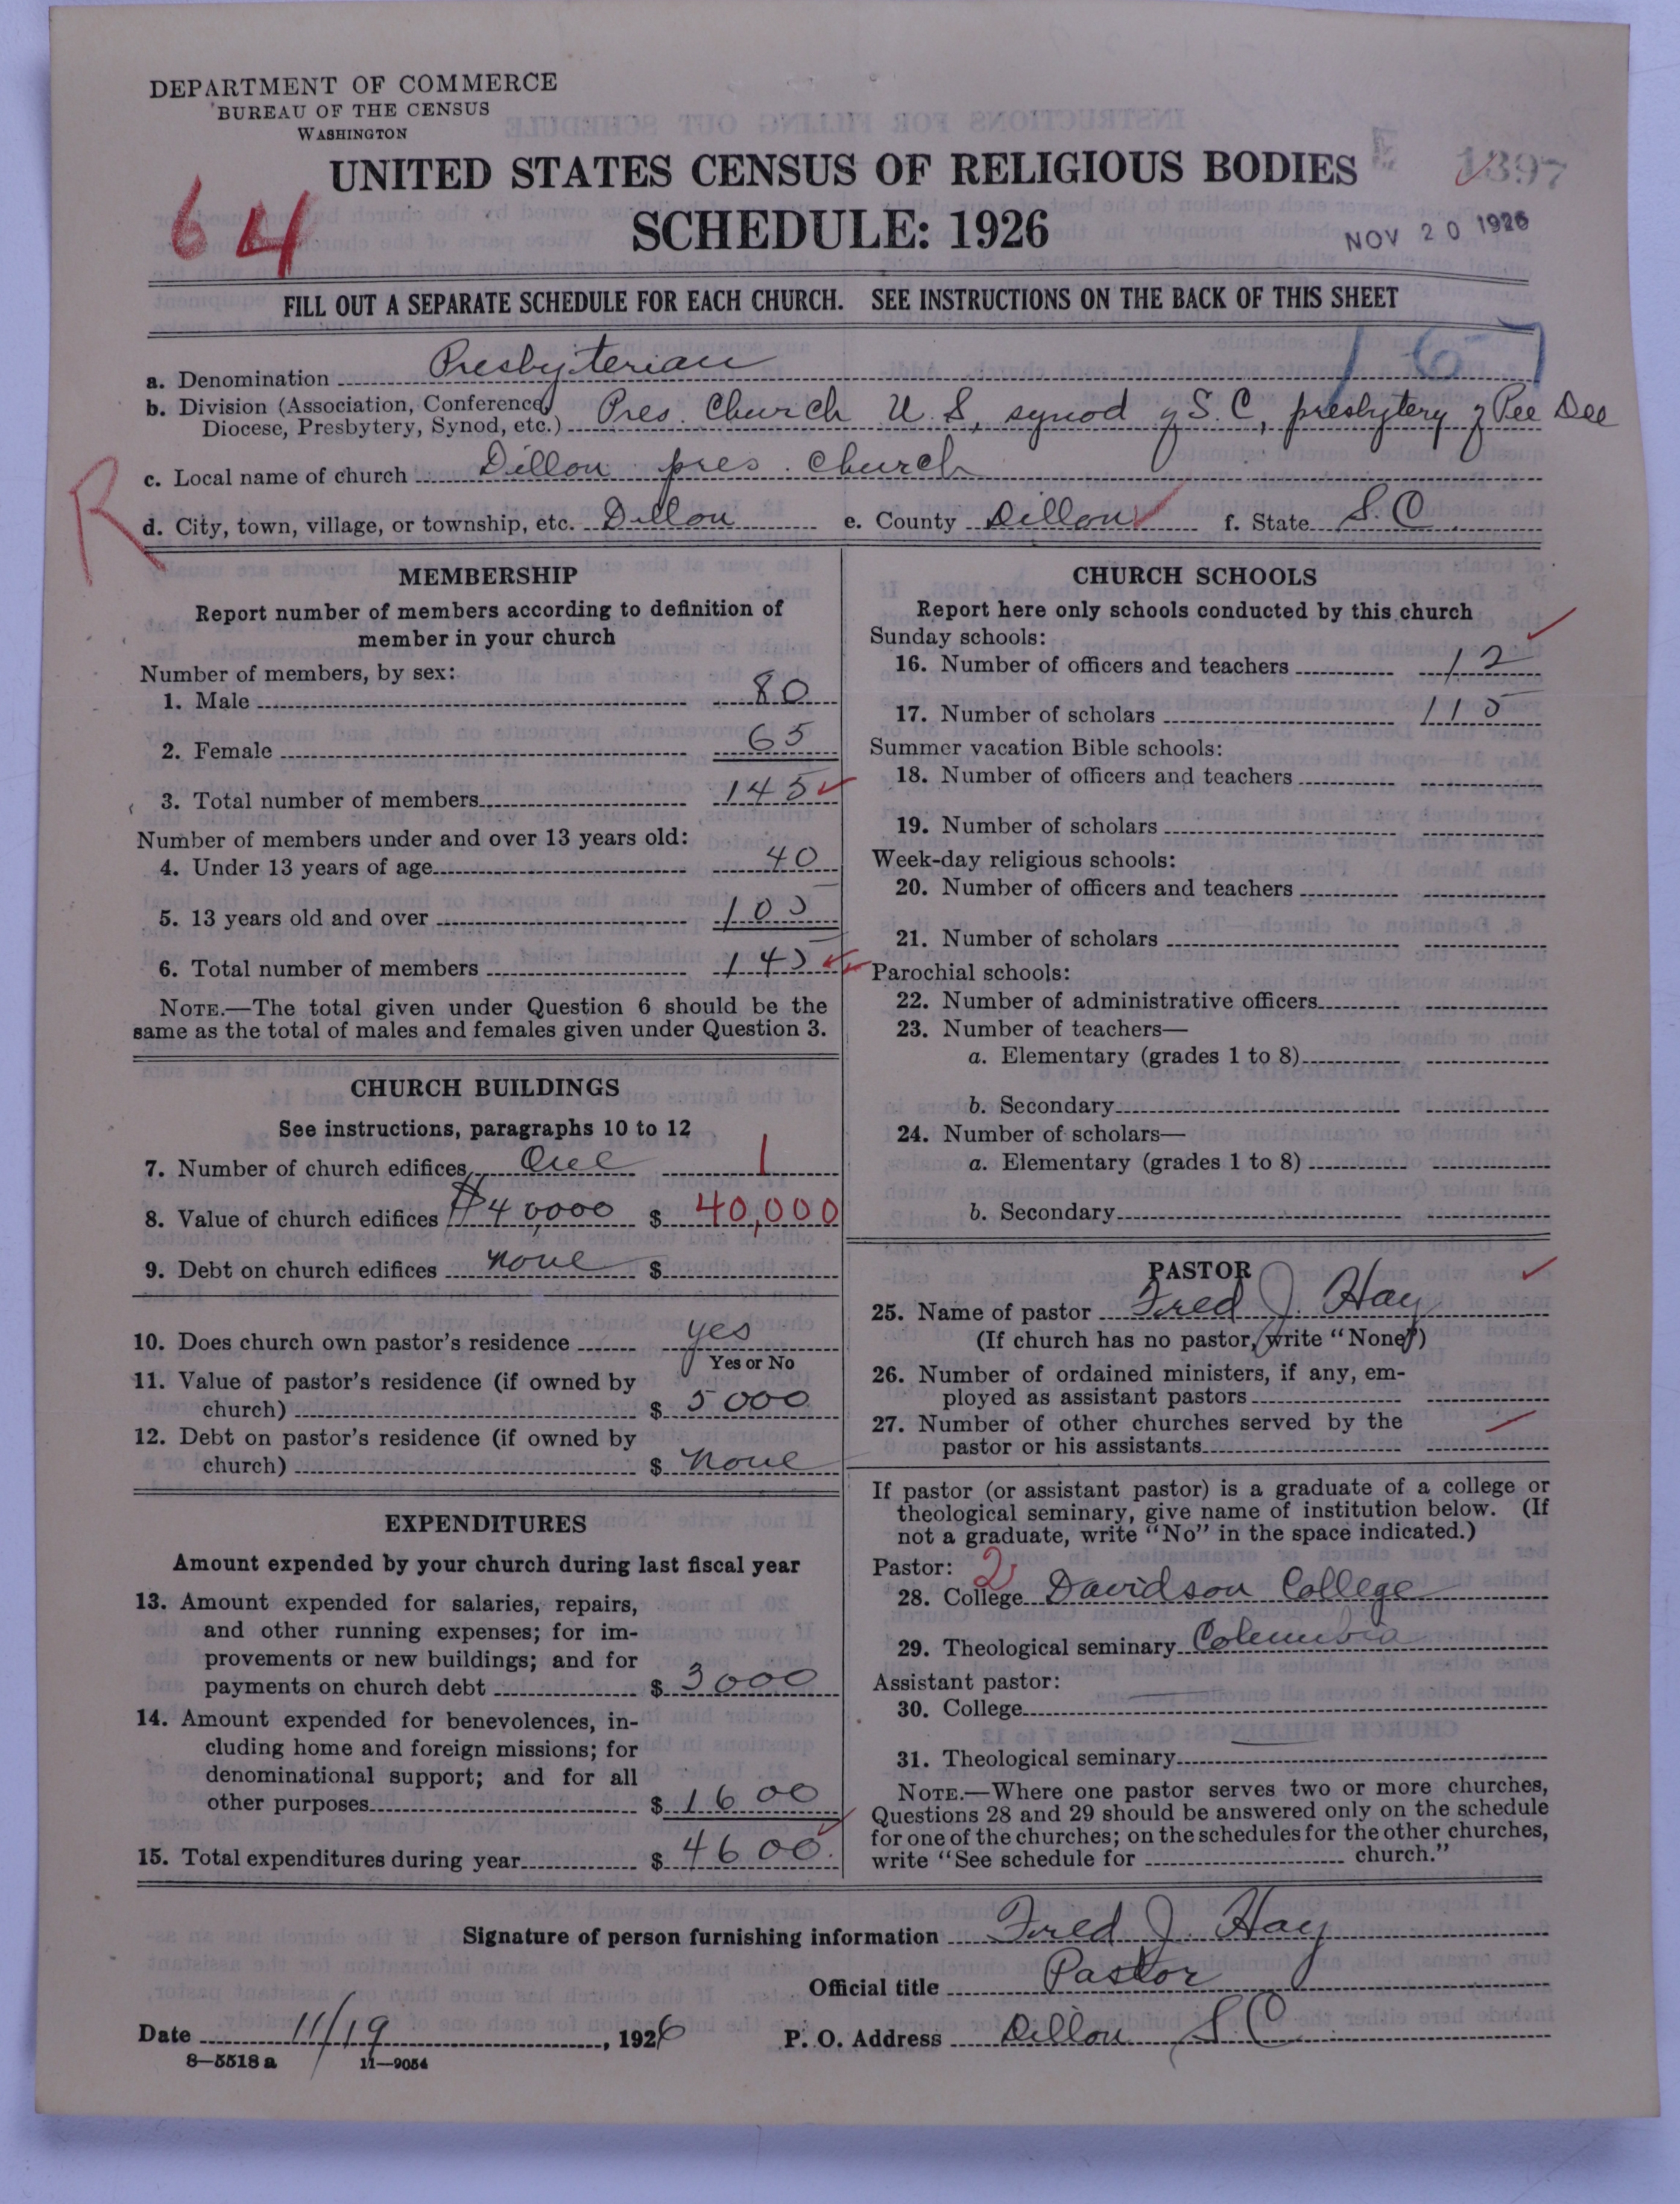 DEPARTMENT OF COMMERCE
BUREAU OF THE CENSUS
WASHINGTON
UNITED STATES CENSUS OF RELIGIOUS BODIES
1397
64
SCHEDULE: 1926
NOV 20 1926
FILL OUT A SEPARATE SCHEDULE FOR EACH CHURCH. SEE INSTRUCTIONS ON THE BACK OF THIS SHEET
1-67
a. Denomination Presbyterian
b. Division (Association, Conference, Pres. Church U.S, synod of S.C, presbytery of Pee Dee
Diocese, Presbytery, Synod, etc.)
R
c. Local name of church Dillon pres. church
d. City, town, village, or township, etc. Dillon e. County Dillon f. State S.C.
MEMBERSHIP
Report number of members according to definition of
member in your church
Number of members, by sex:
1. Male 80
2. Female 65
3. Total number of members 145
Number of members under and over 13 years old:
4. Under 13 years of age 40
5. 13 years old and over 105
6. Total number of members 145
NOTE.—The total given under Question 6 should be the
same as the total of males and females given under Question 3.
CHURCH BUILDINGS
See instructions, paragraphs 10 to 12
7. Number of church edifices One 1
8. Value of church edifices $40,000 $ 40,000
9. Debt on church edifices none $
10. Does church own pastor's residence yes
Yes or No
11. Value of pastor's residence (if owned by
church) $ 5000
12. Debt on pastor's residence (if owned by
church) $ none
EXPENDITURES
Amount expended by your church during last fiscal year
13. Amount expended for salaries, repairs,
and other running expenses; for im-
provements or new buildings; and for
payments on church debt $ 3000
14. Amount expended for benevolences, in-
cluding home and foreign missions; for
denominational support; and for all
other purposes $ 1600
15. Total expenditures during year $ 4600
CHURCH SCHOOLS
Report here only schools conducted by this church
Sunday schools:
16. Number of officers and teachers 12
17. Number of scholars 115
Summer vacation Bible schools:
18. Number of officers and teachers
19. Number of scholars
Week-day religious schools:
20. Number of officers and teachers
21. Number of scholars
Parochial schools:
22. Number of administrative officers
23. Number of teachers—
a. Elementary (grades 1 to 8)
b. Secondary
24. Number of scholars—
a. Elementary (grades 1 to 8)
b. Secondary
PASTOR
25. Name of pastor Fred J. Hay
(If church has no pastor, write "None")
26. Number of ordained ministers, if any, em-
ployed as assistant pastors
27. Number of other churches served by the
pastor or his assistants
If pastor (or assistant pastor) is a graduate of a college or
theological seminary, give name of institution below. (If
not a graduate, write "No" in the space indicated.)
Pastor: 2
28. College Davidson College
29. Theological seminary Columbia
Assistant pastor:
30. College
31. Theological seminary
NOTE.—Where one pastor serves two or more churches,
Questions 28 and 29 should be answered only on the schedule
for one of the churches; on the schedules for the other churches,
write "See schedule for church."
Signature of person furnishing information Fred J. Hay
Official title Pastor
Date 11/19, 1926 P. O. Address Dillon S C
8—5518 a 11—9054